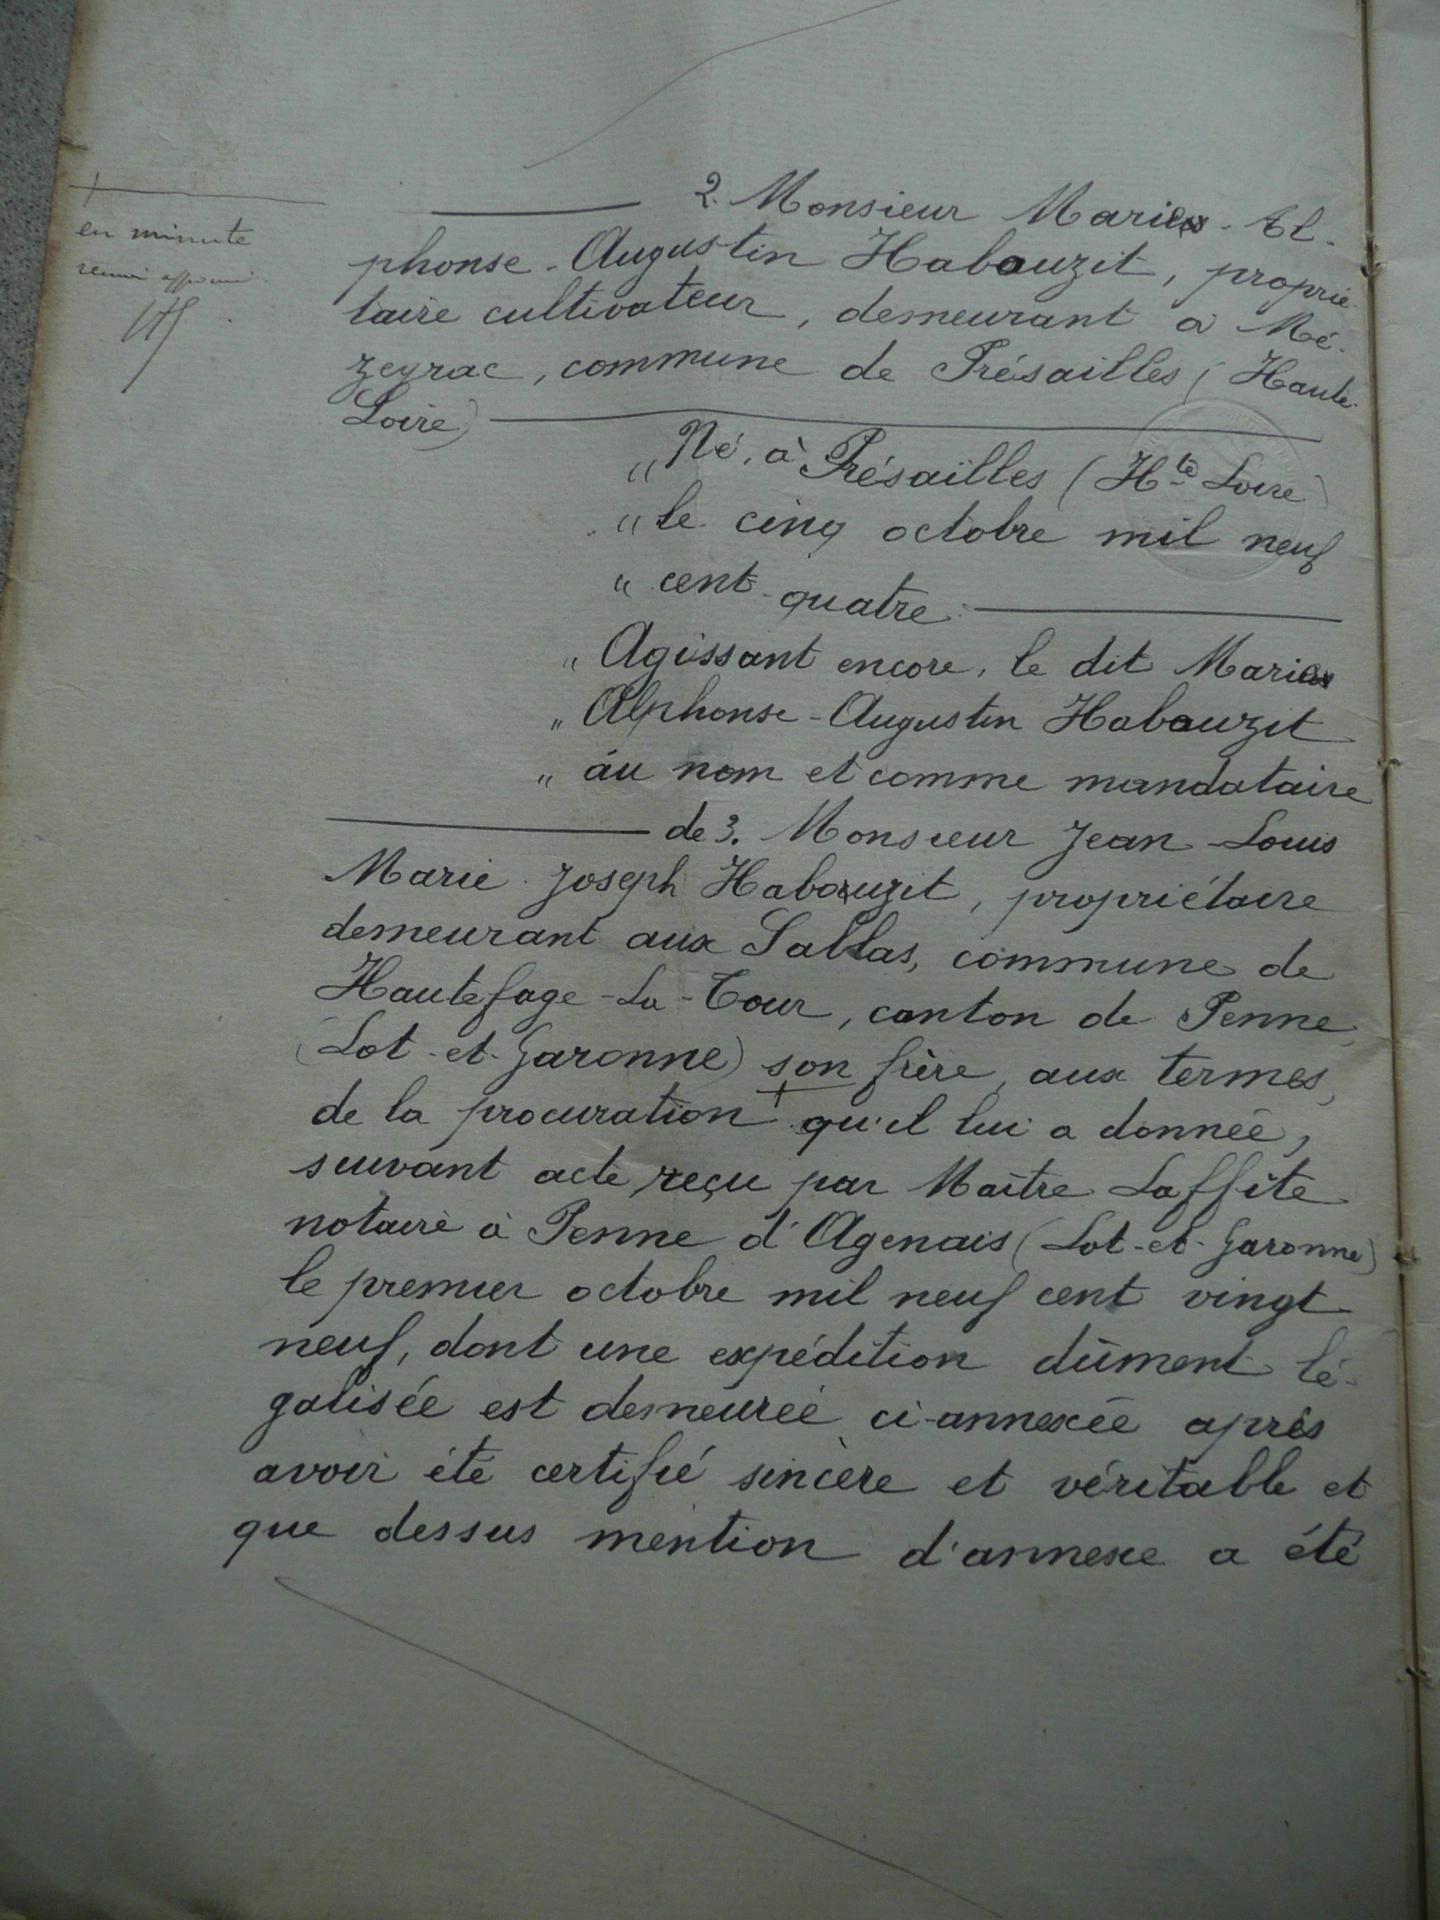 +
en minute
2. Monsieur Marie - Al-
phonse - Augustin Habouzit, proprié-
taire cultivateur, demeurant à Mé-
zeyrac, commune de Présailles (Haute-
Loire)
"Né, à Présailles (Hte Loire)
"le cinq octobre mil neuf
"cent quatre
"Agissant encore, le dit Marie
"Alphonse - Augustin Habouzit
"au nom et comme mandataire
de 3. Monsieur Jean - Louis
Marie Joseph Habouzit, propriétaire
demeurant aux Sallas, commune de
Hautefage - La - Tour, canton de Penne,
(Lot - et - Garonne) son frère, aux termes,
de la procuration + qu'il lui a donnée,
suivant acte reçu par Maître Laffite
notaire à Penne d'Agenais (Lot - et - Garonne)
le premier octobre mil neuf cent vingt
neuf, dont une expédition dûment lé-
galisée est demeurée ci-annexée après
avoir été certifié sincère et véritable et
que dessus mention d'annexe a été